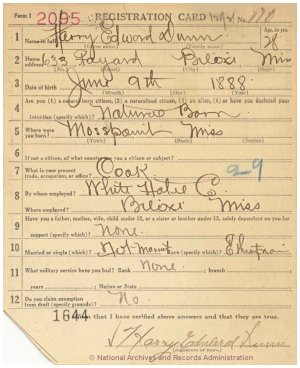 Form 1 2095 REGISTRATION CARD No.
1 Name in full Harry Edward Dunn Age, in yrs. 28
(Given name) (Family name)
2 Home address 633 Biloxi Miss
(No.) (Street) (City) (State)
3 Date of birth June 9th 1888
(Month) (Day) (Year)
4 Are you (1) a natural-born citizen, (2) a naturalized citizen, (3) an alien, (4) or have you declared your
intention (specify which)? Natural Born
5 Where were you born? Mosspoint Miss
(Town) (State) (Nation)
6 If not a citizen, of what country are you a citizen or subject?
7 What is your present trade, occupation, or office? Cook 29
8 By whom employed? White Hotel Co
Where employed? Biloxi Miss
9 Have you a father, mother, wife, child under 12, or a sister or brother under 12, solely dependent on you for
support (specify which)? None
10 Married or single (which)? Not Married Race (specify which)?
11 What military service have you had? Rank None ; branch
years ; Nation or State
12 Do you claim exemption from draft (specify grounds)? No
1644 I affirm that I have verified above answers and that they are true.
Harry Edward Dunn
(Signature or mark)
© National Archives and Records Administration